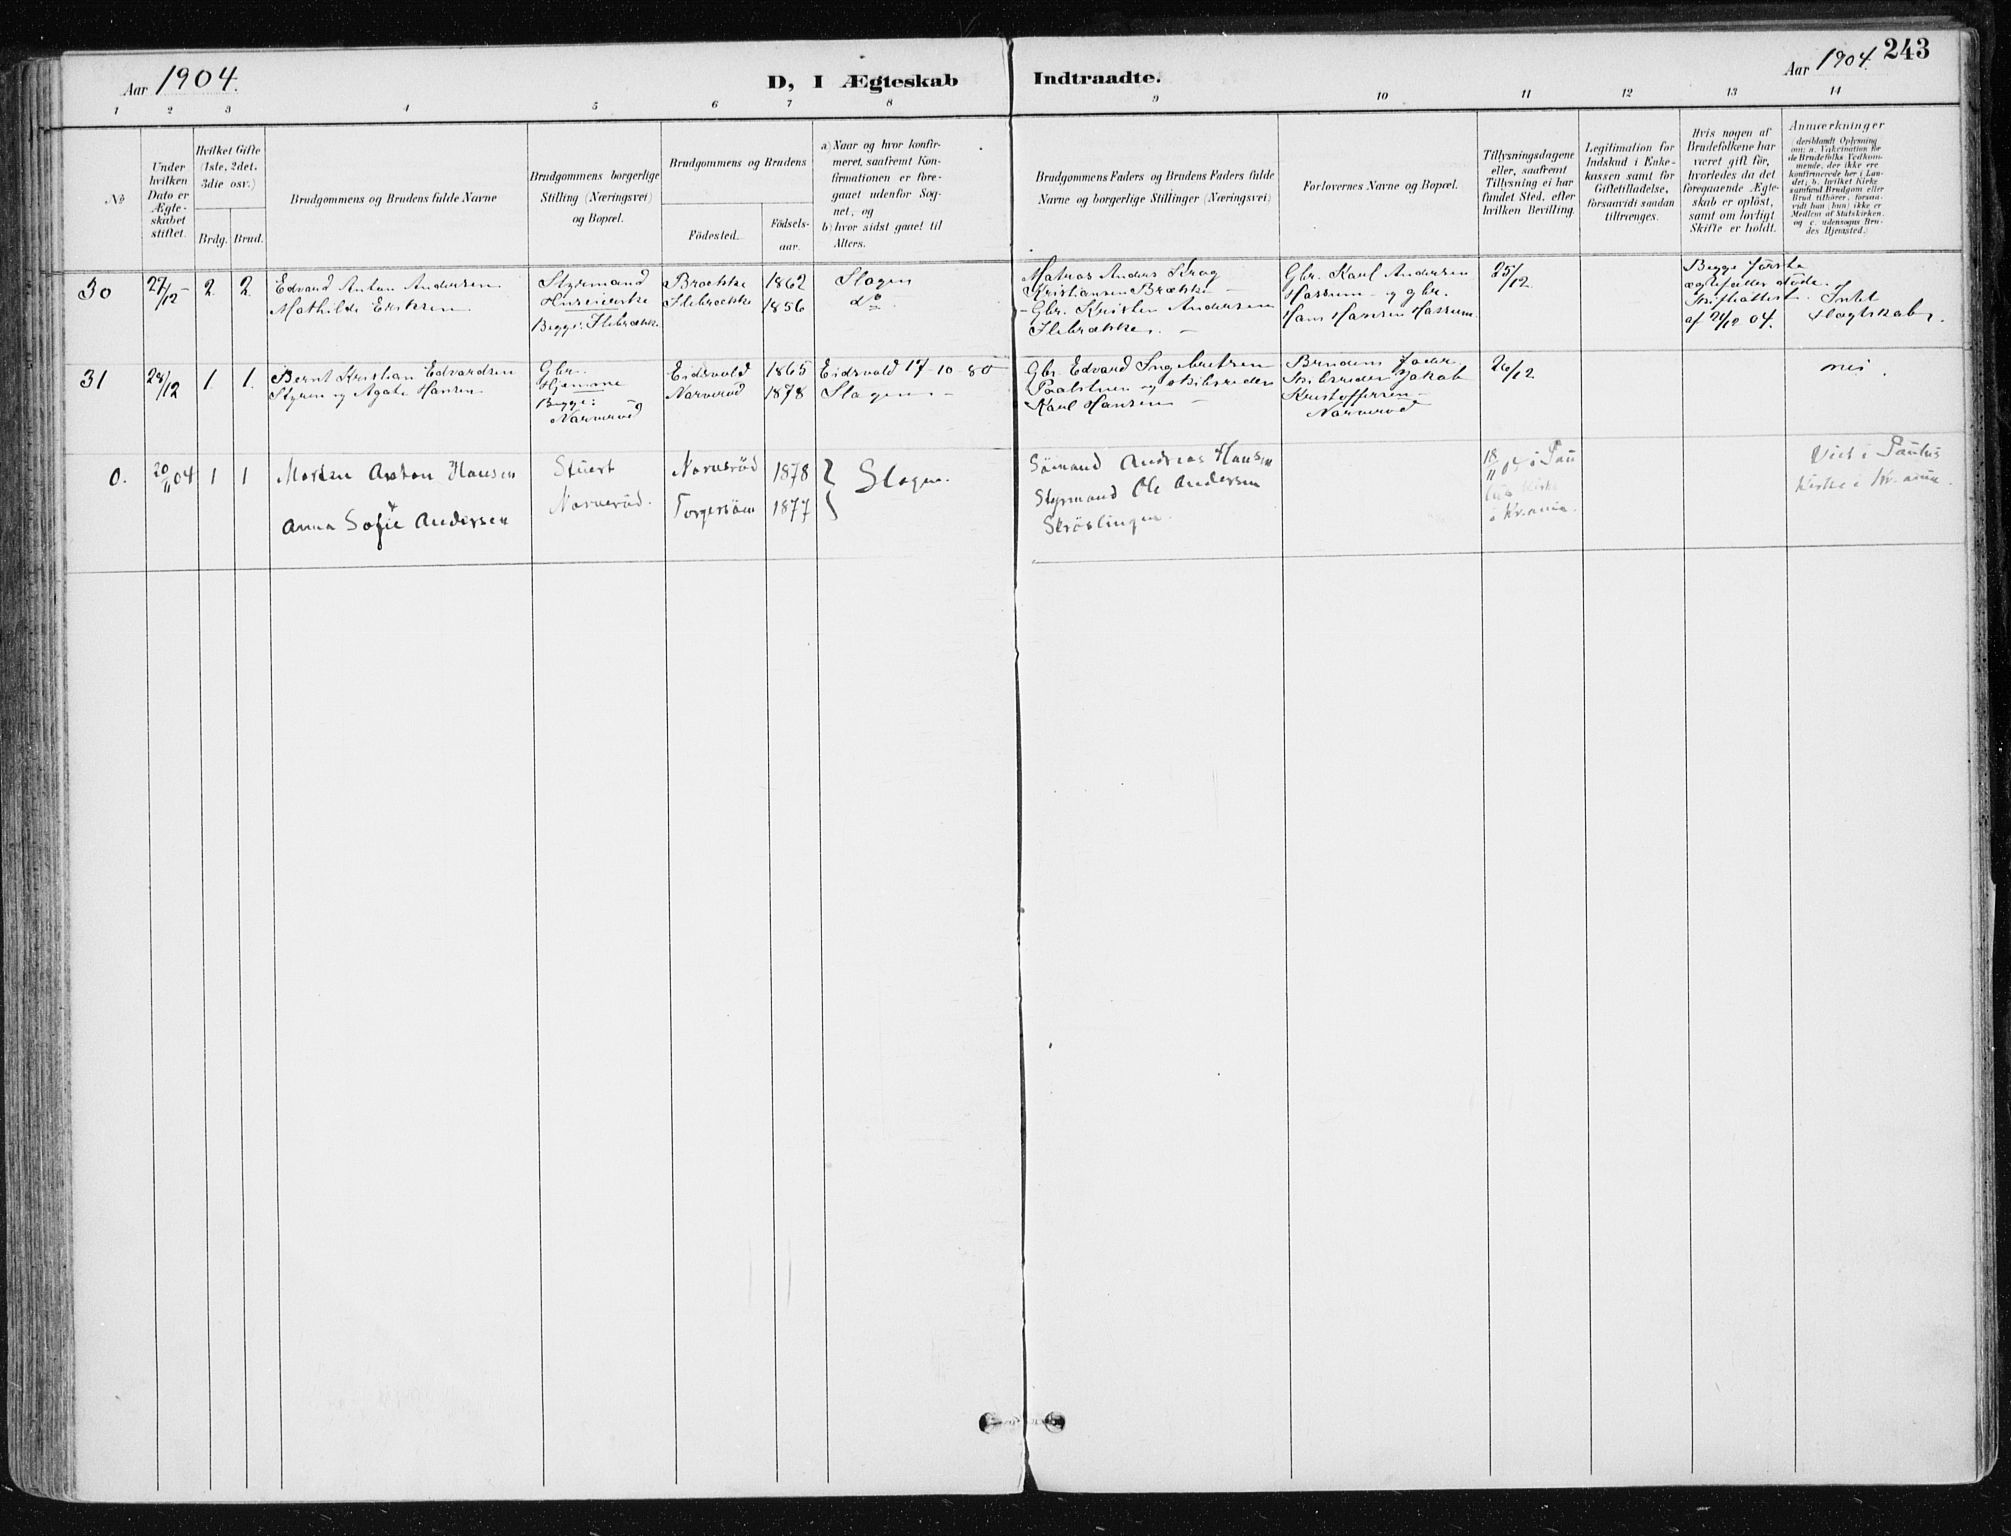 Aar 1904.
D, I Ægteskab Indtraadte.
Aar 1904. 243
1 2 3 4 5 6 7 8 9 10 11 12 13 14
No
Under hvilken Dato er Ægteskabet stiftet.
Hvilket Gifte (1ste, 2det, 3die osv.)
Brdg. Brud.
Brudgommens og Brudens fulde Navne
Brudgommens borgerlige Stilling (Næringsvei) og Bopæl.
Brudgommens og Brudens
Fødested.
Fødsels-aar.
a) Naar og hvor konfirmeret, saafremt Konfirmationen er foregaaet udenfor Sognet, og
b) hvor sidst gaaet til Alters.
Brudgommens Faders og Brudens Faders fulde Navne og borgerlige Stillinger (Næringsvei)
Forlovernes Navne og Bopæl.
Tillysningsdagene eller, saafremt Tillysning ei har fundet Sted, efter hvilken Bevilling.
Legitimation for Indskud i Enkekassen samt for Giftetilladelse, forsaavidt saadan tiltrænges.
Hvis nogen af Brudefolkene har været gift før, hvorledes da det foregaaende Ægteskab er opløst, samt om lovligt Skifte er holdt.
Anmærkninger (deriblandt Oplysning om: a. Vakcination for de Brudefolks Vedkommende, der ikke ere konfirmerede her i Landet; b. hvilket Kirkesamfund Brudgom eller Brud tilhører, forsaavidt han (hun) ikke er Medlem af Statskirken, og c. udensogns Brudes Hjemsted.)
30 27/12 2. 2.
Edvard Anton Andersen
Mathilde Eriksen
Styrmand
Begge: Ilebrække
Brække 1862 Slagen
Ilebrække 1856 do
Matros Anders Krog
Kristiansen Brække –
Gbr. Kristen Andersen
Ilebrække. –
Gbr. Karl Andersen
Hassum – og gbr.
Hans Hansen Hassum.
25/12.
Begge første
ægtefæller døde.
Skifteattest
af 21/12 04.
Intet
slægtskab.
31 28/12 1. 1.
Bernt Kristian Edvardsen
Styren og Agate Hansen
Gbr.
Hjemme
Begge:
Narverød
Eidsvold 1865 Eidsvold 17-10-80
Narverød 1878 Slagen –
Gbr. Edvard Ingebretsen
og skibsreder
Karl Hansen –
Brudens fader
Skibsreder Jakob
Kristoffersen –
Narverød
26/12.
nei.
0. 20/11 04 1 1
Morten Anton Hansen
Anna Sofie Andersen
Stuert
Narverød.
Narverød 1878
Torgersøen 1877
Slagen.
Sömand Andreas Hansen
Styrmand Ole Andersen
18/11 04 i Pau
lus Kirke
i Kr.ania.
Viet i Paulus
Kirke i Kr.ania.